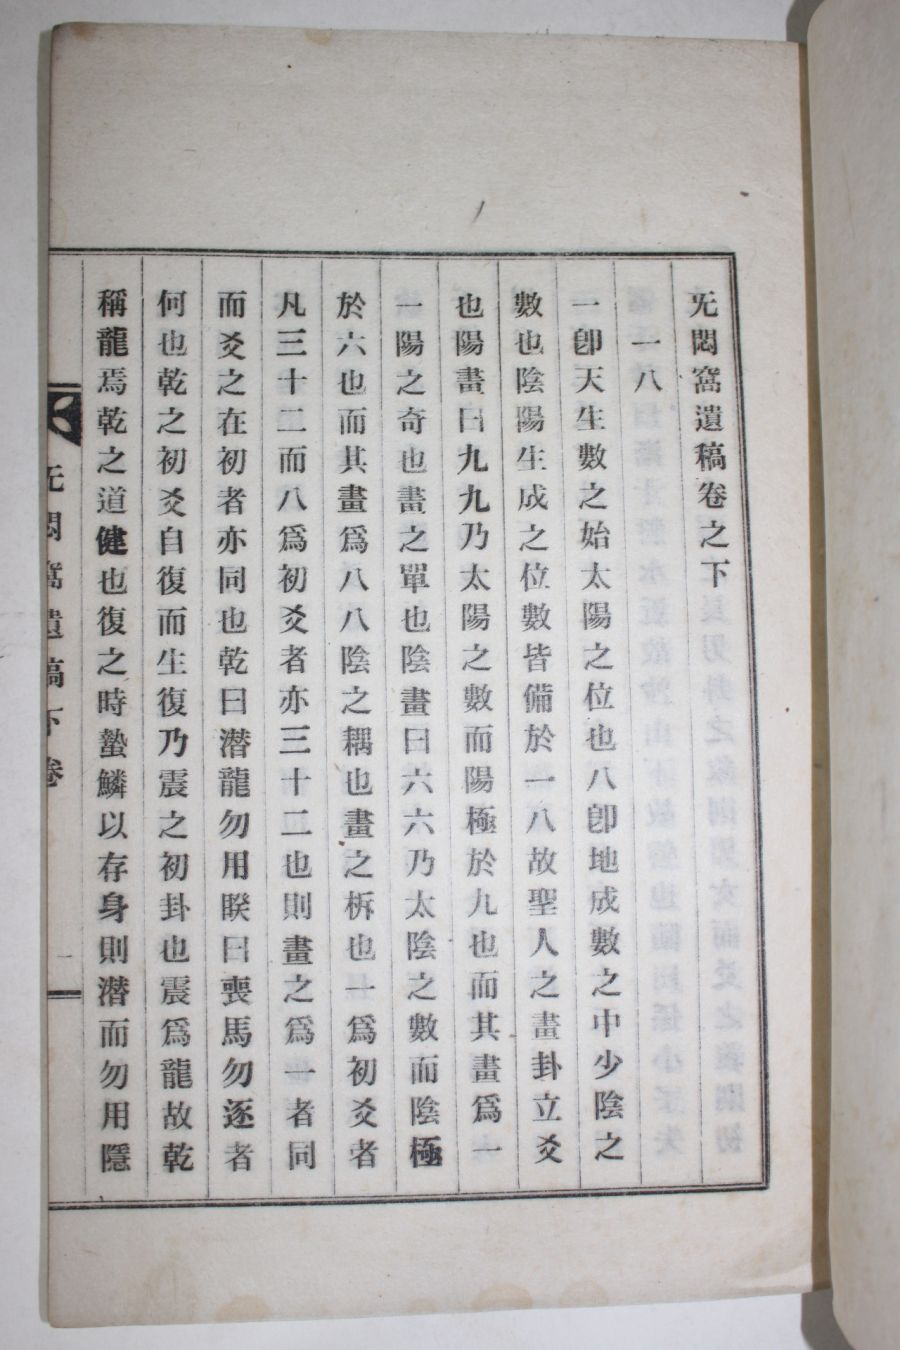 旡悶窩遺稿卷之下
一八
一卽天生數之始太陽之位也八卽地成數之中少陰之
數也陰陽生成之位數皆備於一八故聖人之畫卦立爻
也陽畫曰九九乃太陽之數而陽極於九也而其畫爲一
一陽之奇也畫之單也陰畫曰六六乃太陰之數而陰極
於六也而其畫爲八八陰之耦也畫之柝也一爲初爻者
凡三十二而八爲初爻者亦三十二也則畫之爲一者同
而爻之在初者亦同也乾曰潜龍勿用睽曰喪馬勿逐者
何也乾之初爻自復而生復乃震之初卦也震爲龍故乾
稱龍焉乾之道健也復之時蟄鱗以存身則潜而勿用隱
旡悶窩遺稿下卷
一